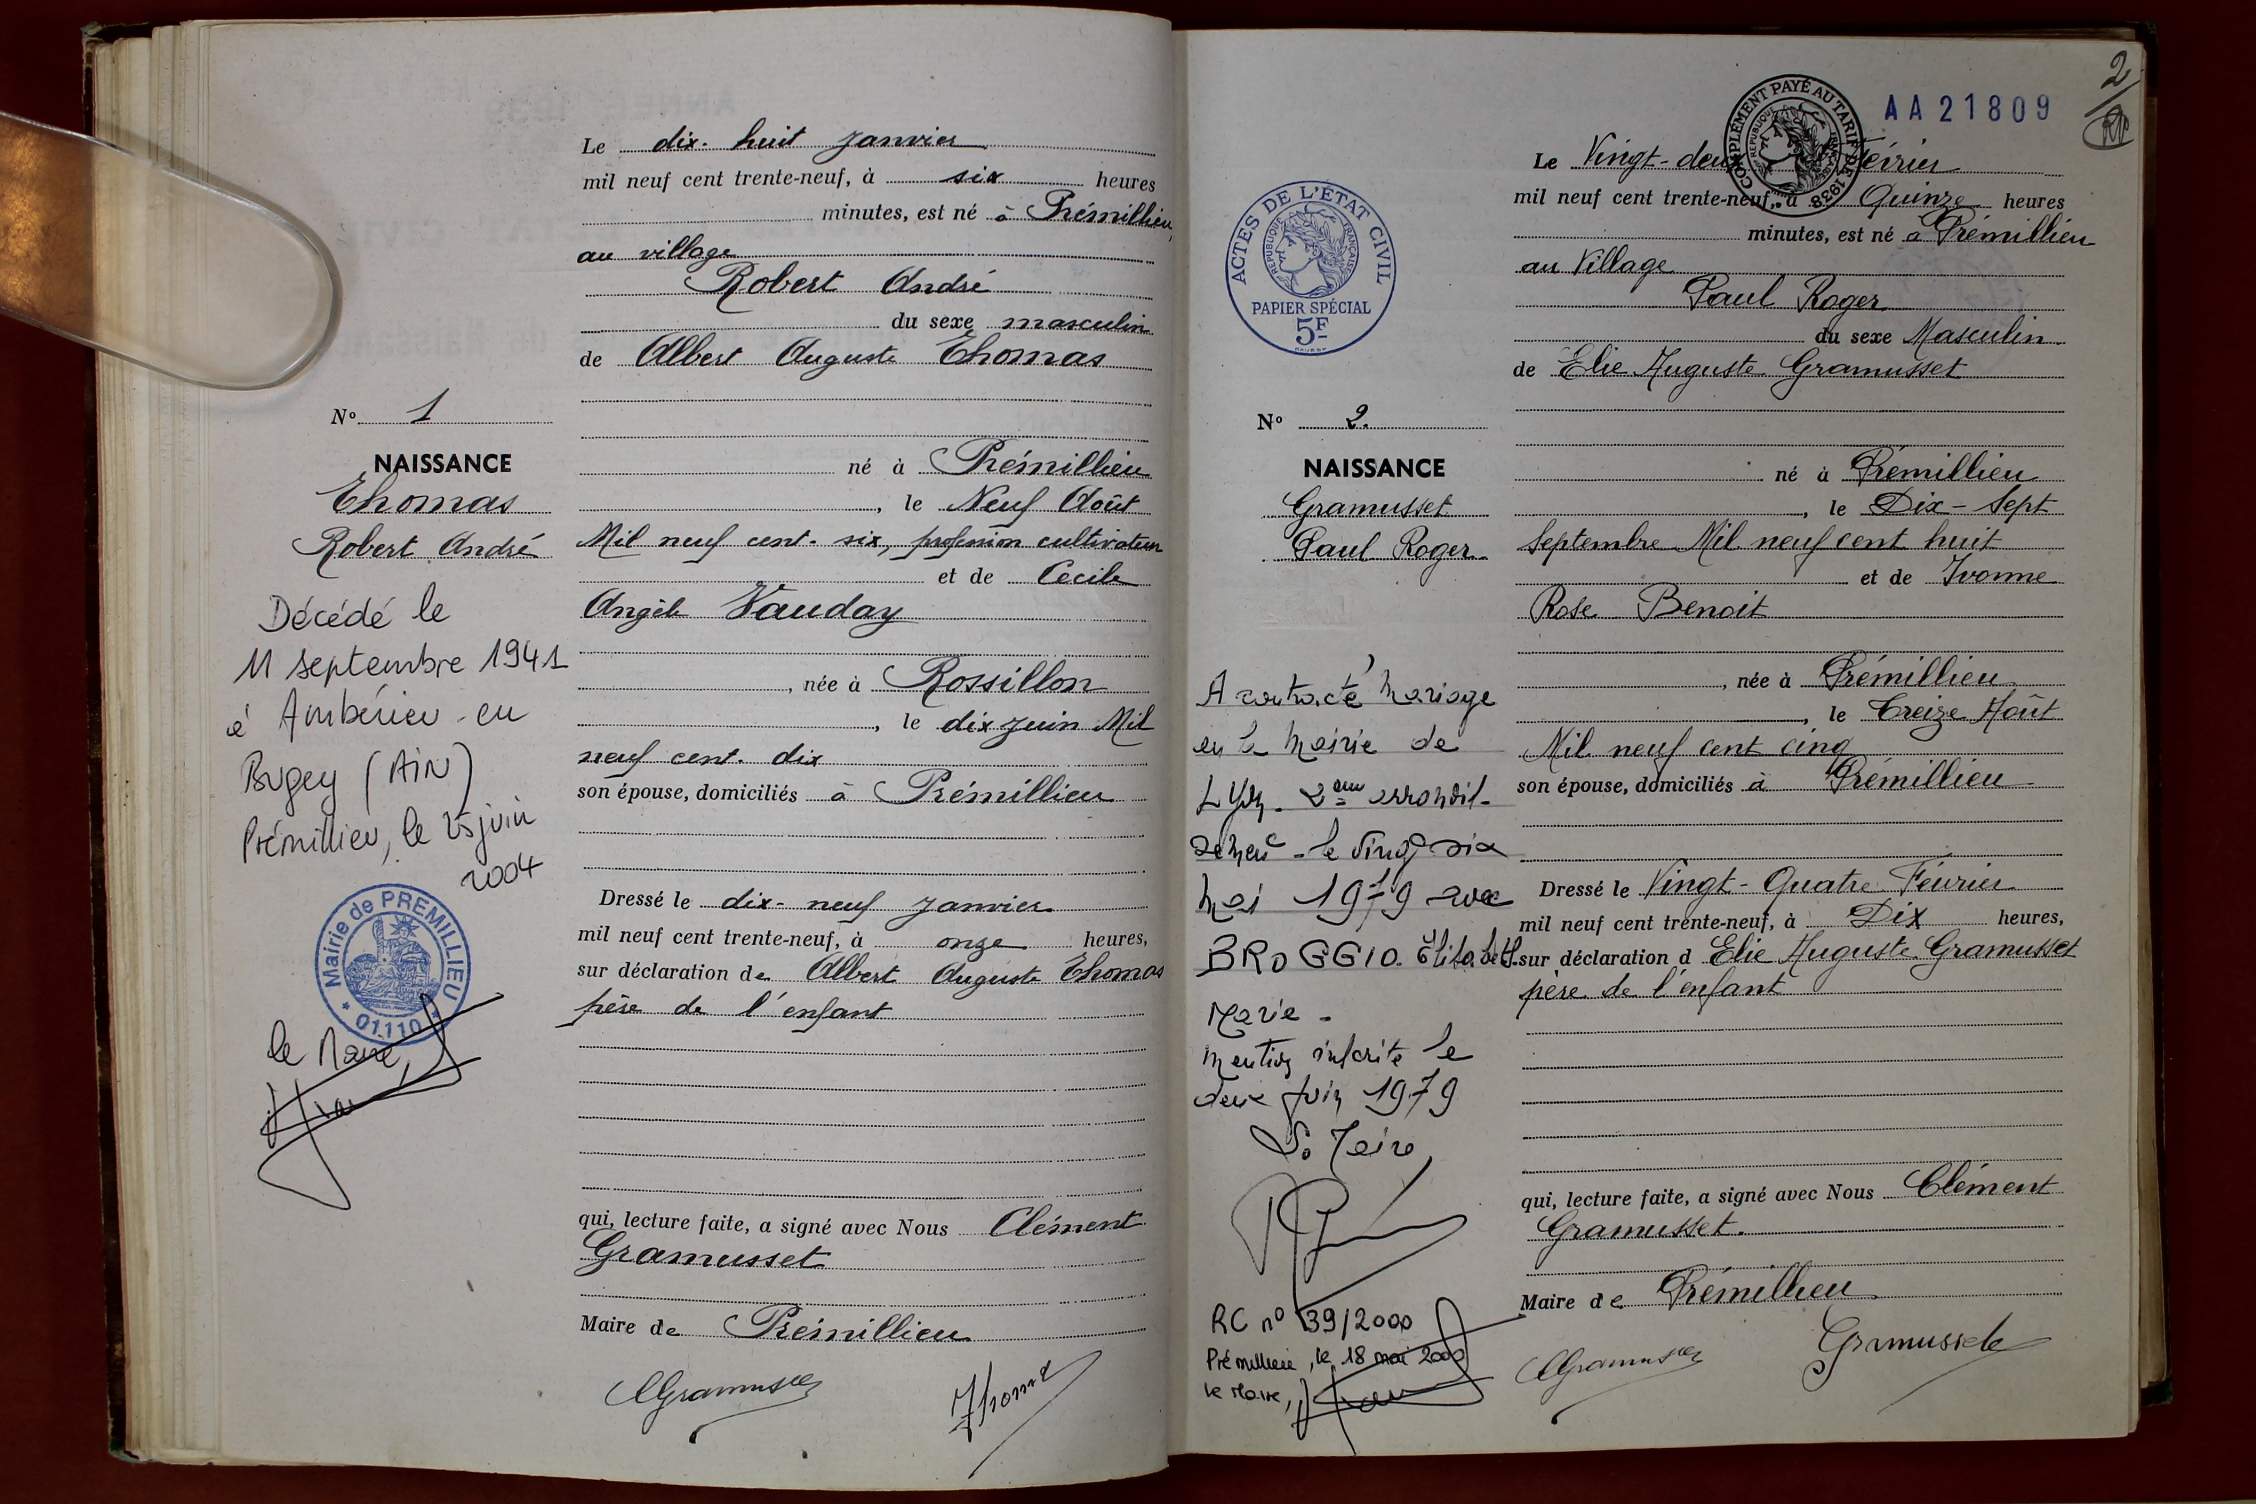 Le dix-huit janvier
mil neuf cent trente-neuf, à six heures
minutes, est né à Prémillieu,
au village
Robert André
du sexe masculin
de Albert Auguste Thomas
né à Prémillieu
, le Neuf Août
Mil neuf cent-six, profession cultivateur
et de Cecile
Angèle Vauday
, née à Rossillon
, le dix juin Mil
neuf cent. dix
son épouse, domiciliés à Prémillieu
Dressé le dix-neuf janvier
mil neuf cent trente-neuf, à onze heures,
sur déclaration de Albert Auguste Thomas
père de l'enfant
qui, lecture faite, a signé avec Nous Clément
Gramusset
Maire de Prémillieu
CGramusset
Thomas
No 1
NAISSANCE
Thomas
Robert André
Décédé le
11 septembre 1941
à Ambérieu-en
Bugey (AIN)
Prémillieu, le 25 juin
2004
Mairie de PREMILLIEU
* 01.110 *
le Maire,
2
AA 21809
COMPLÉMENT PAYÉ AU TARIF DE 1938
REPUBLIQUE FRANÇAISE
ACTES DE L'ÉTAT CIVIL
REPUBLIQUE FRANÇAISE
PAPIER SPÉCIAL
5F
No 2.
NAISSANCE
Gramusset
Paul Roger
A contracté Mariage
en la Mairie de
Lyon. 2ème arrondis-
sement - le vingt six
Mai 1979 avec
BROGGIO. Elisabeth.
Marie -
Mention inscrite le
deux juin 1979
Le Maire
RC no 39/2000
Prémillieu, le 18 mai 2000
le Maire,
Le Vingt-deux Février
mil neuf cent trente-neuf, à Quinze heures
minutes, est né à Prémillieu
au Village
Paul Roger
du sexe Masculin
de Elie Auguste Gramusset
né à Prémillieu
, le Dix-Sept
Septembre Mil neuf cent huit
et de Yvonne
Rose Benoit
, née à Prémillieu
, le Treize Août
Mil neuf cent cinq
son épouse, domiciliés à Prémillieu
Dressé le Vingt-Quatre Février
mil neuf cent trente-neuf, à Dix heures,
sur déclaration d Elie Auguste Gramusset
père de l'enfant
qui, lecture faite, a signé avec Nous Clément
Gramusset.
Maire de Prémillieu
CGramusset
Gramusset